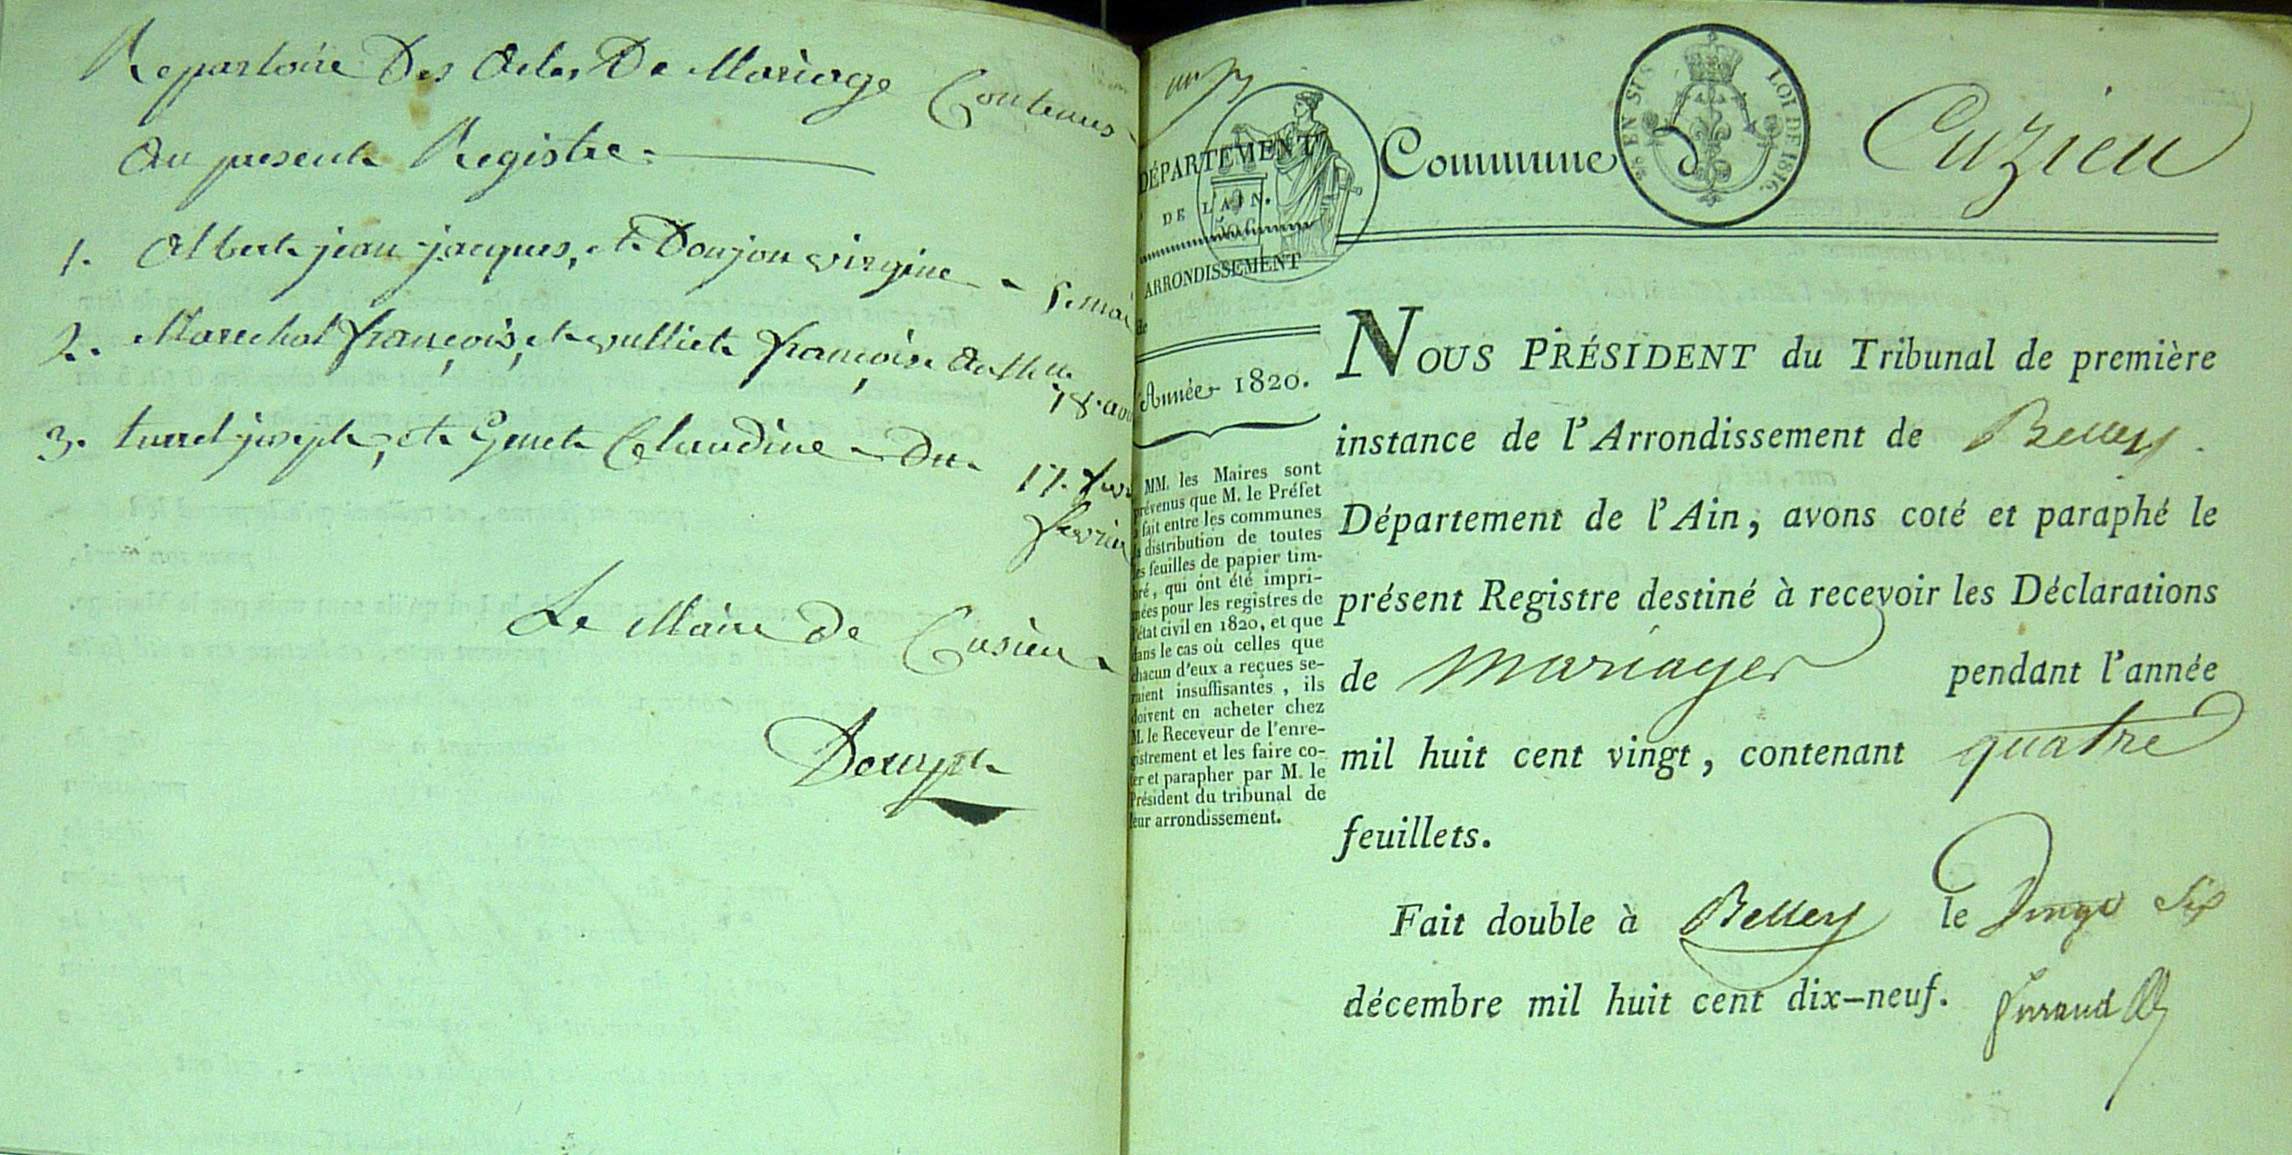 Repartoire Des Actes De Mariage Contenus
Au present Registre.
1. Albert jean jacques, et Donjon virgine 5. mai
2. Marechal françois, et vulliet françoise
18. aou
3. turrel joseph, et Genet Claudine Du
17.
fevrier
Le Maire de Cusieu
DÉPARTEMENT
DE L'AIN.
ARRONDISSEMENT
de
Année 1820.
MM. les Maires sont
prévenus que M. le Préfet
a fait entre les communes
la distribution de toutes
les feuilles de papier tim-
bré, qui ont été impri-
mées pour les registres de
l'état civil en 1820, et que
dans le cas où celles que
chacun d'eux a reçues se-
raient insuffisantes, ils
doivent en acheter chez
M. le Receveur de l'enre-
gistrement et les faire co-
ter et parapher par M. le
Président du tribunal de
leur arrondissement.
Commune d Cuzieu
EN SUS LOI DE 1816.
NOUS PRÉSIDENT du Tribunal de première
instance de l'Arrondissement de Belley.
Département de l'Ain, avons coté et paraphé le
présent Registre destiné à recevoir les Déclarations
de mariages pendant l'année
mil huit cent vingt, contenant quatre
feuillets.
Fait double à Belley le vingt six
décembre mil huit cent dix-neuf.